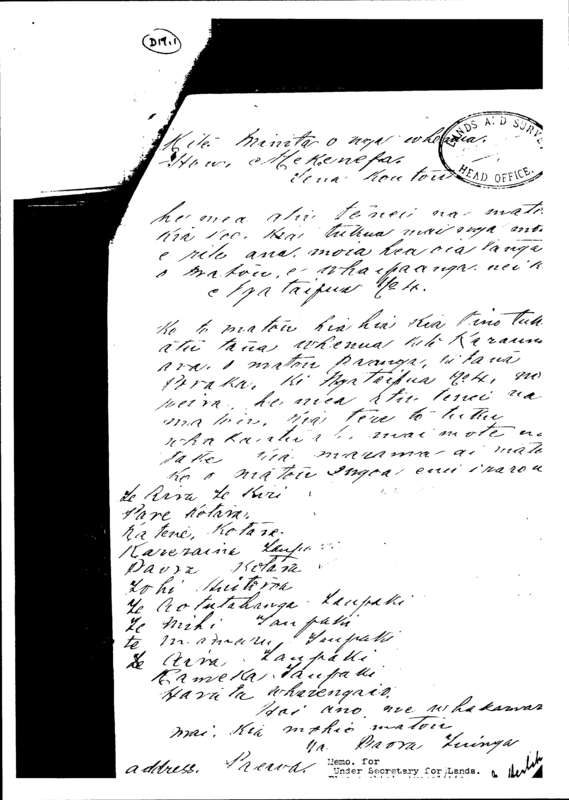 D17.1
LANDS AND SURVEY
HEAD OFFICE.
Kite Minita o nga whenua.
Hon. Mekenefa.
Tena Koutou
he mea atu tenei na matou
Kia koe. Kia tukua mai nga mo
e rite ana, moia hea oia tanga
o matou, e whaipaanga nei k
e Ngataipua No 4.
Ko to matou hiahia Kia tino tuk
atu taua whenua Kite Karaun
ara. o matou Paanga, i taua
Poraka, Ki Ngataipua No 4, no
reira he mea atu tenei na
matou. Kia tere to tuku
whakaatu mai mote
take Kia marama ai matou
Ko o matou Ingoa enei i raro
Te Aira Te Kiri
Pare Kotara.
Katene, Kotara.
Kareraina Taupaki
Paora Kotara
Te Aotutahanga Taupaki
Te Mihi Taupaki
te mamaru, Taupaki
Te Aira Taupaki
Rameka Taupaki
Harata wharengaio,
Hoi ano me whakamar
mai, Kia mohio matou
Na Paora Tuinga
address. Paeroa.
Memo. for
Under Secretary for Lands.